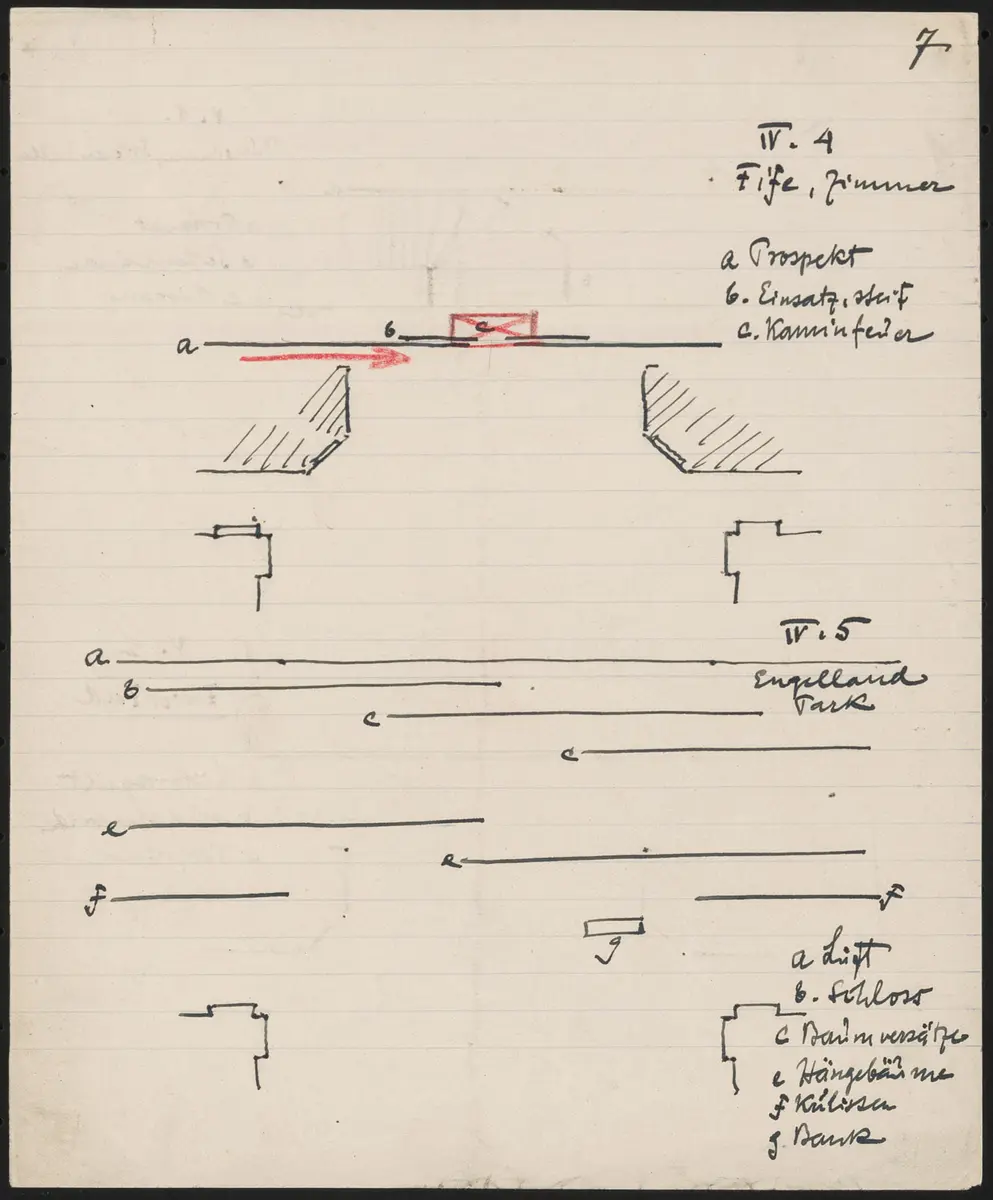 7
IV. 4
Fife, Zimmer
a Prospekt
b. Einsatz, steif
c. Kaminfeuer
b
c
a
IV. 5
a.
Engelland
Park
b
c
c
e
e
f
f
g
a Luft
b. Schloss
c Baumversätze
e Hängebäume
f Kulissen
g. Bank